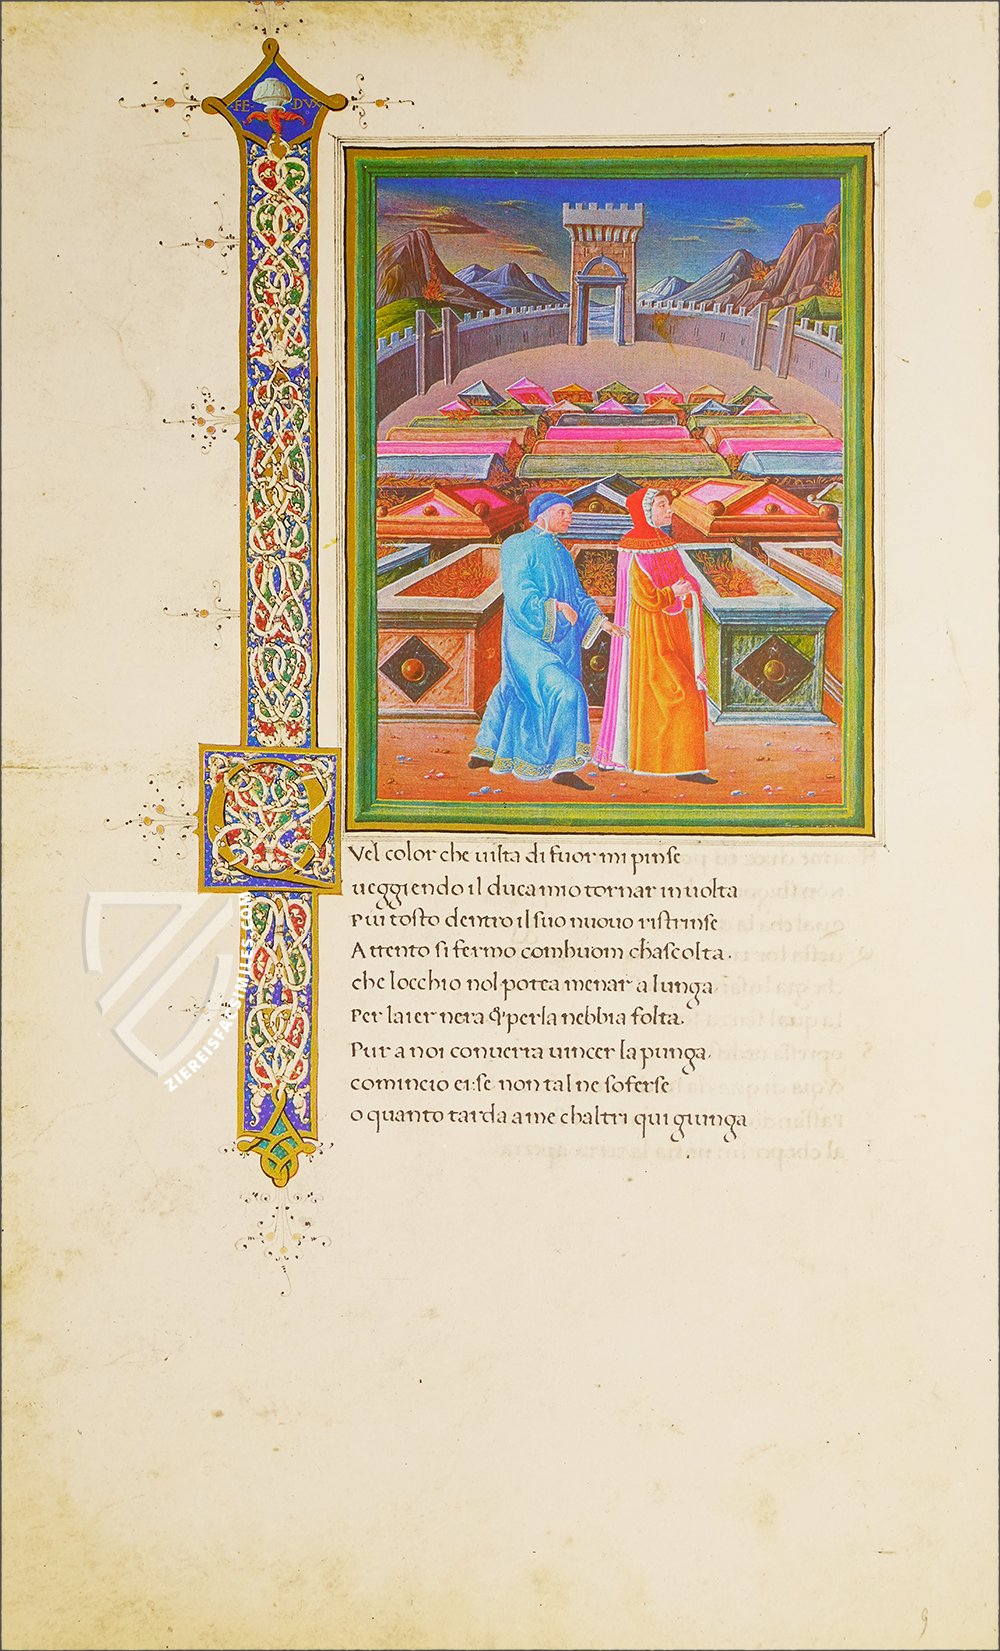 FE DVX
QVel color che uilta di fuor mi pinse
ueggiendo il duca mio tornar in uolta
piu tosto dentro il suo nuouo ristrinse
Attento si fermo comhuom chascolta.
che locchio nol potea menar a lunga
Per laier nera & per la nebbia folta.
Pur a noi conuerra uincer la punga.
comincio ei: se non tal ne soferse
o quanto tarda a me chaltri qui giunga
ZIEREISFACSIMILES.COM
9